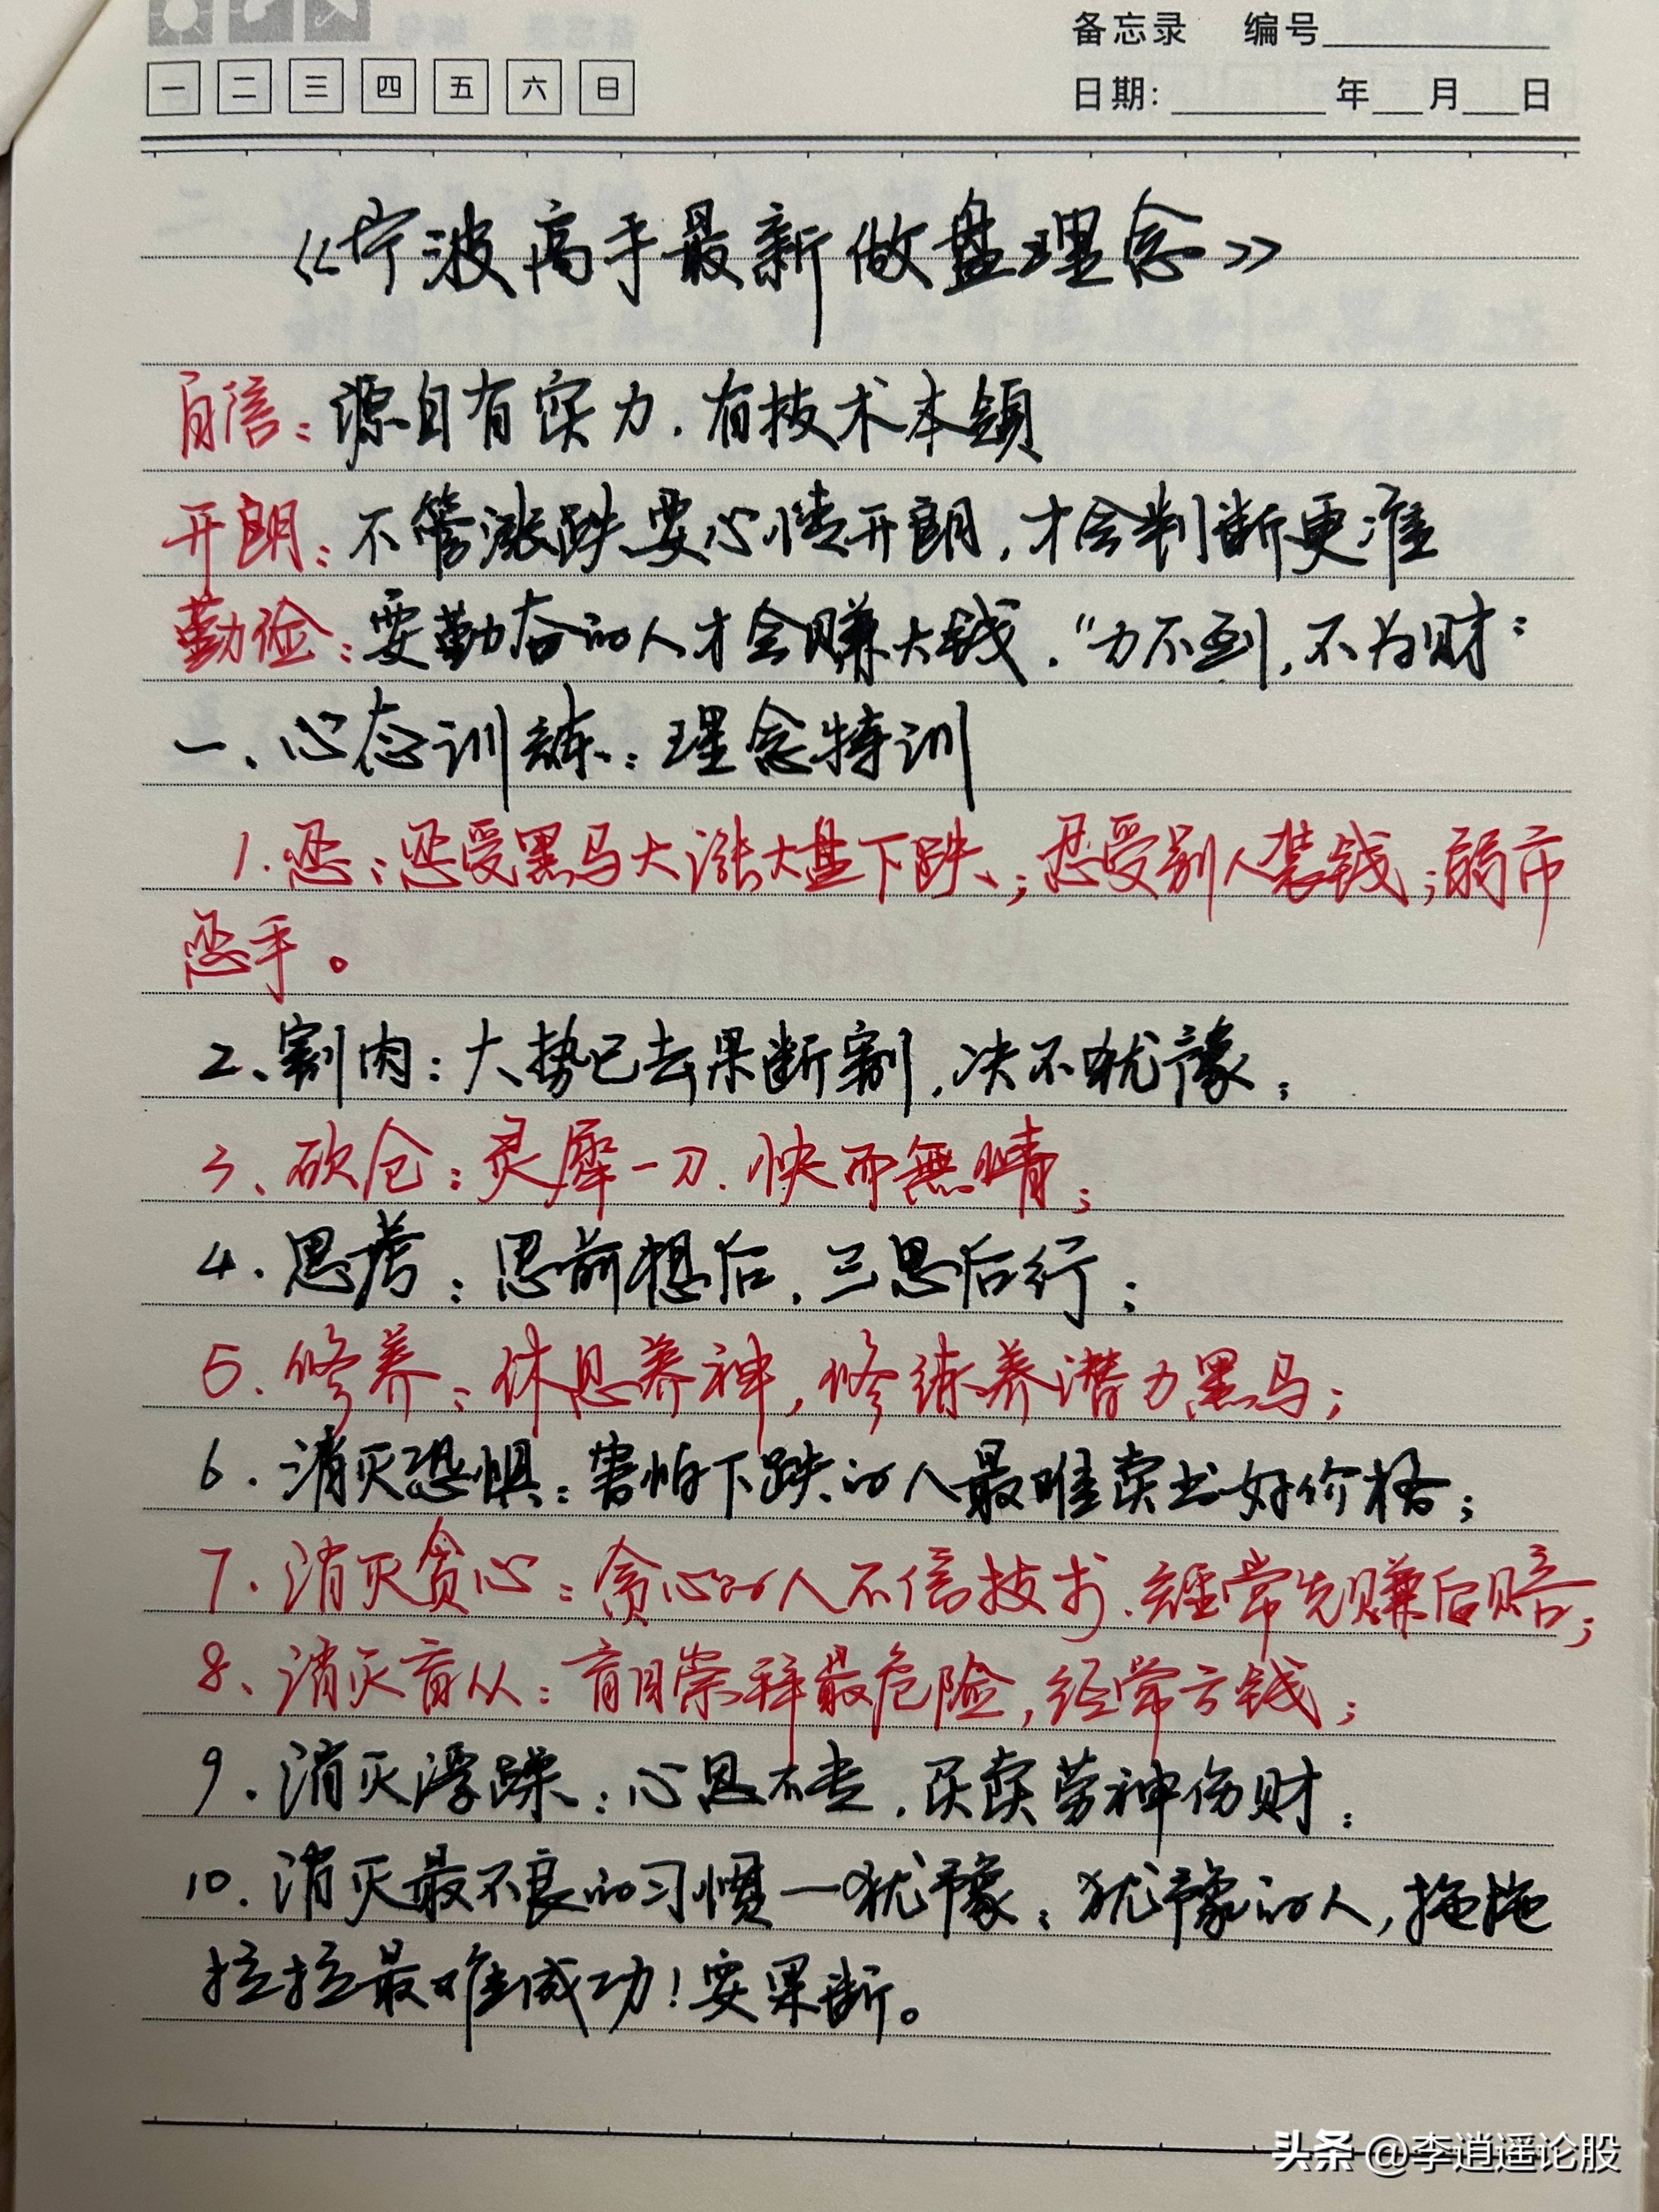 备忘录 编号
一 二 三 四 五 六 日
日期: 年 月 日
《宁波高手最新做盘理念》
自信:源自有实力.有技术本领
开朗:不管涨跌要心情开朗,才会判断更准
勤俭:要勤奋的人才会赚大钱."力不到,不为财"
一、心态训练:理念特训
1.忍:忍受黑马大涨大盘下跌;忍受别人装钱;弱市
忍手。
2、割肉:大势已去果断割,决不犹豫;
3、砍仓:灵犀一刀.快而無情;
4.思考:思前想后,三思后行;
5.修养:休息养神,修练养潜力黑马;
6.消灭恐惧:害怕下跌的人最难卖出好价格;
7.消灭贪心:贪心的人不信技术.经常先赚后赔;
8、消灭盲从:盲目崇拜最危险,经常亏钱;
9.消灭浮躁:心思不专.买卖劳神伤财;
10.消灭最不良的习惯一犹豫:犹豫的人,拖拖
拉拉最难成功!要果断。
头条 @李逍遥论股